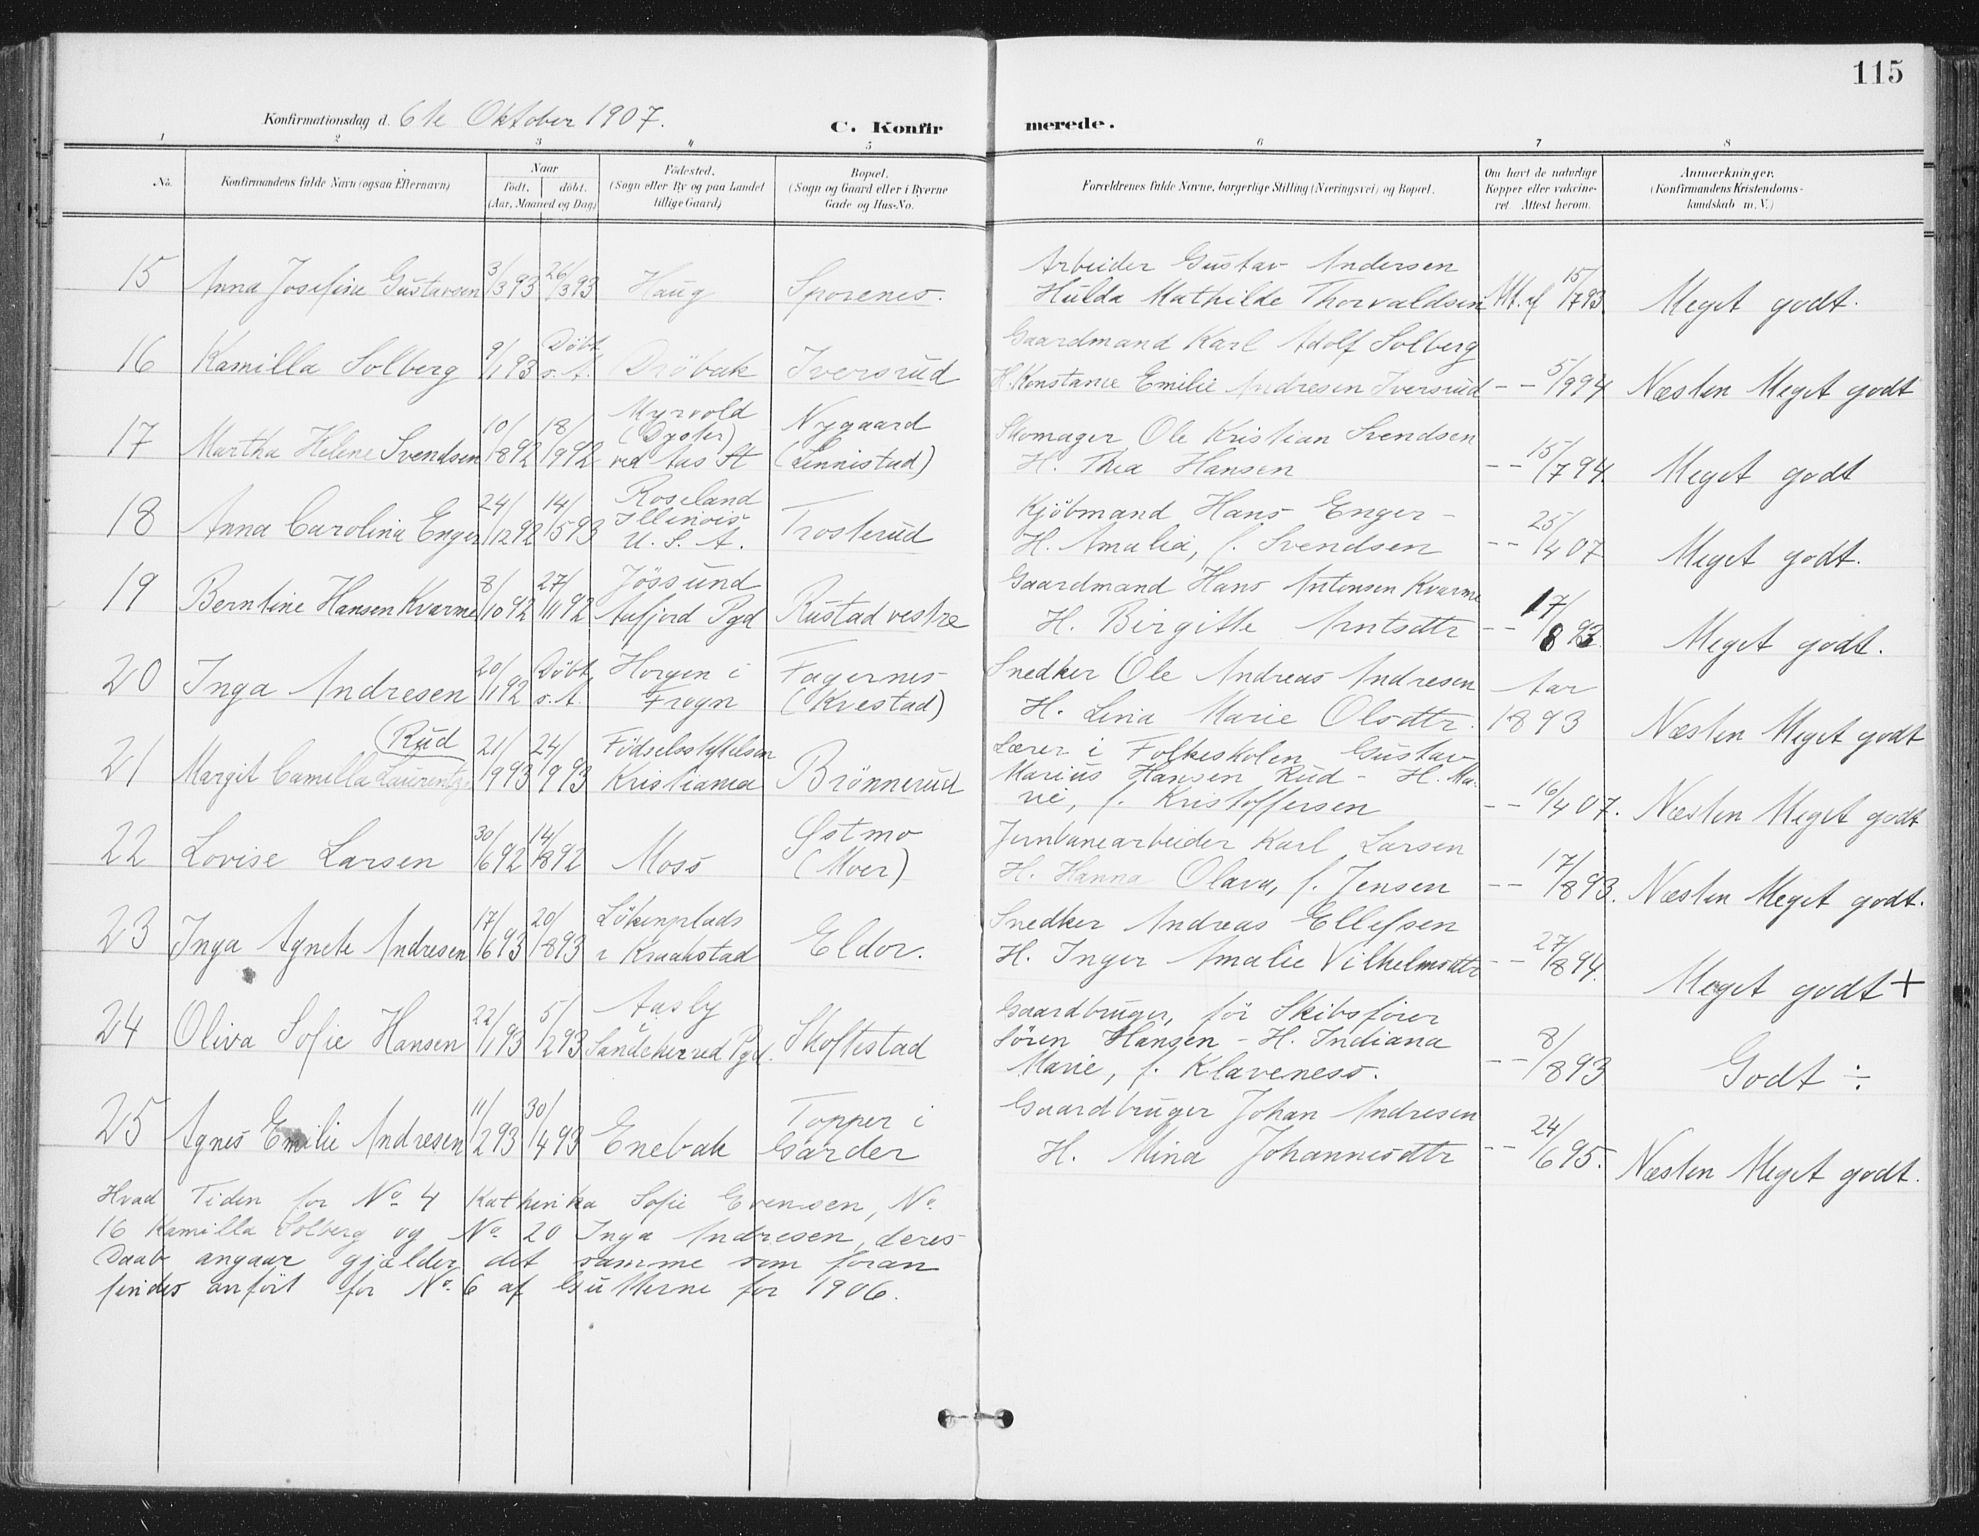 115
Konfirmationsdag d. 6te Oktober 1907.
C. Konfirmerede.
1 2 3 4 5 6 7 8
No. Konfirmandens fulde Navn (ogsaa Efternavn) Naar født. døbt. (Aar, Maaned og Dag) Fødested. (Sogn eller By og paa Landet tillige Gaard) Bopæl. (Sogn og Gaard eller i Byerne Gade og Hus-No. Forældrenes fulde Navne, borgerlige Stilling (Næringsvei) og Bopæl. Om havt de naturlige Kopper eller vakcineret Attest herom. Anmærkninger. (Konfirmandens Kristendomskundskab m. V.)
15 Anna Josefine Gustavsen 3/3 93 26/3 93 Haug Sporenes. Arbeider Gustav Andersen
Hulda Mathilde Thorvaldsen Att. af 15/7 93. Meget godt.
16 Kamilla Solberg 9/1 93 Döbt s. A. Dröbak Iversrud Gaardmand Karl Adolf Solberg
H. Konstance Emilie Andresen Iversrud - - 5/9 94 Næsten Meget godt
17 Martha Helene Svendsen 10/8 92 18/9 92 Myrvold (Dyster) ved Aas St Nygaard (Linnistad) Skomager Ole Kristian Svendsen
H. Thea Hansen - - 15/7 94. Meget godt
18 Anna Carolina Enger 24/12 92 14/5 93 Roseland Illinois U. S. A. Trosterud Kjöbmand Hans Enger -
H. Amalia, f. Svendsen - - 25/4 07 Meget godt.
19 Berntine Hansen Kvarme 8/10 92 27/11 92 Jössund Aafjord Pgd Rustad vestre Gaardmand Hans Antonsen Kvarme
H. Birgitte Arntsdtr - - 17/8 93. Meget godt.
20 Inga Andresen 20/1 92 Döbt s. A. Horgen i Frogn Fagernes (Kvestad) Snedker Ole Andreas Andresen
H. Lina Marie Olsdtr. Aar 1893 Næsten Meget godt
21 Margit Camilla Laurentze (Rud 21/9 93 24/9 93 Födselsstiftelsen Kristiania Brönnerud Lærer i Folkeskolen Gustav
Marius Hansen Rud - H. Ma-
rie, f. Kristoffersen - - 16/4 07. Næsten Meget godt
22 Lovise Larsen 30/6 92 14/8 92 Moss Östmo (Moer) Jernbanearbeider Karl Larsen
H. Hanna Olava, f. Jensen - - 17/8 93. Næsten Meget godt.
23 Inga Agnete Andresen 17/6 93 20/8 93 Lökenplads i Kraakstad Eldor. Snedker Andreas Ellefsen
H. Inger Amalie Vilhelmsdtr - - 27/8 94. Meget godt +
24 Oliva Sofie Hansen 22/1 93 5/2 93 Aasby Sandeherred Pgd. Skoftestad Gaardbruger, för Skibsförer
Sören Hansen - H. Indiana
Marie, f. Klaveness. - - 8/8 93 Godt ÷
25 Agnes Emilie Andresen 11/2 93 30/4 93 Enebak Topper i Garder Gaardbruger Johan Andresen
H. Mina Johannesdtr - - 24/6 95. Næsten Meget godt.
Hvad Tiden for No 4 Kathinka Sofie Evensen, No
16 Kamilla Solberg og No 20 Inga Andresen, deres
Daab angaar gjælder det samme som foran
findes anfört for No 6 af Gutterne for 1906.